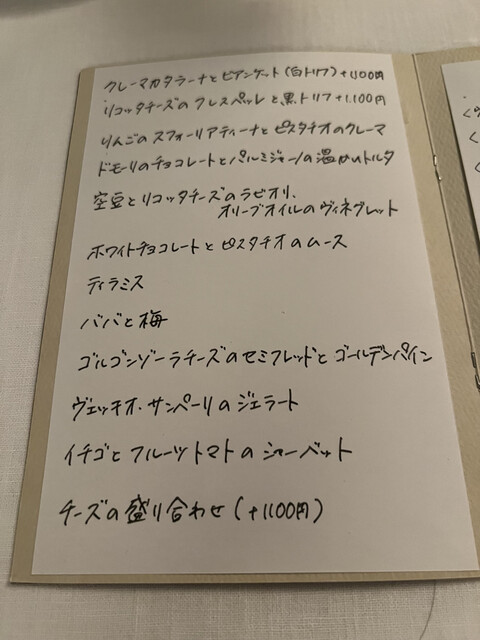 クレーマカタラーナとビアンケット(白トリフ)+1,100円
リコッタチーズのクレスペッレと黒トリフ+1,100円
りんごのスフォーリアティーナとピスタチオのクレーマ
ドモーリのチョコレートとパルミジャーノの温かいトルタ
空豆とリコッタチーズのラビオリ、
オリーブオイルのヴィネグレット
ホワイトチョコレートとピスタチオのムース
ティラミス
ババと梅
ゴルゴンゾーラチーズのセミフレッドとゴールデンパイン
ヴェッキオ・サンペーリのジェラート
イチゴとフルーツトマトのシャーベット
チーズの盛り合わせ(+1100円)